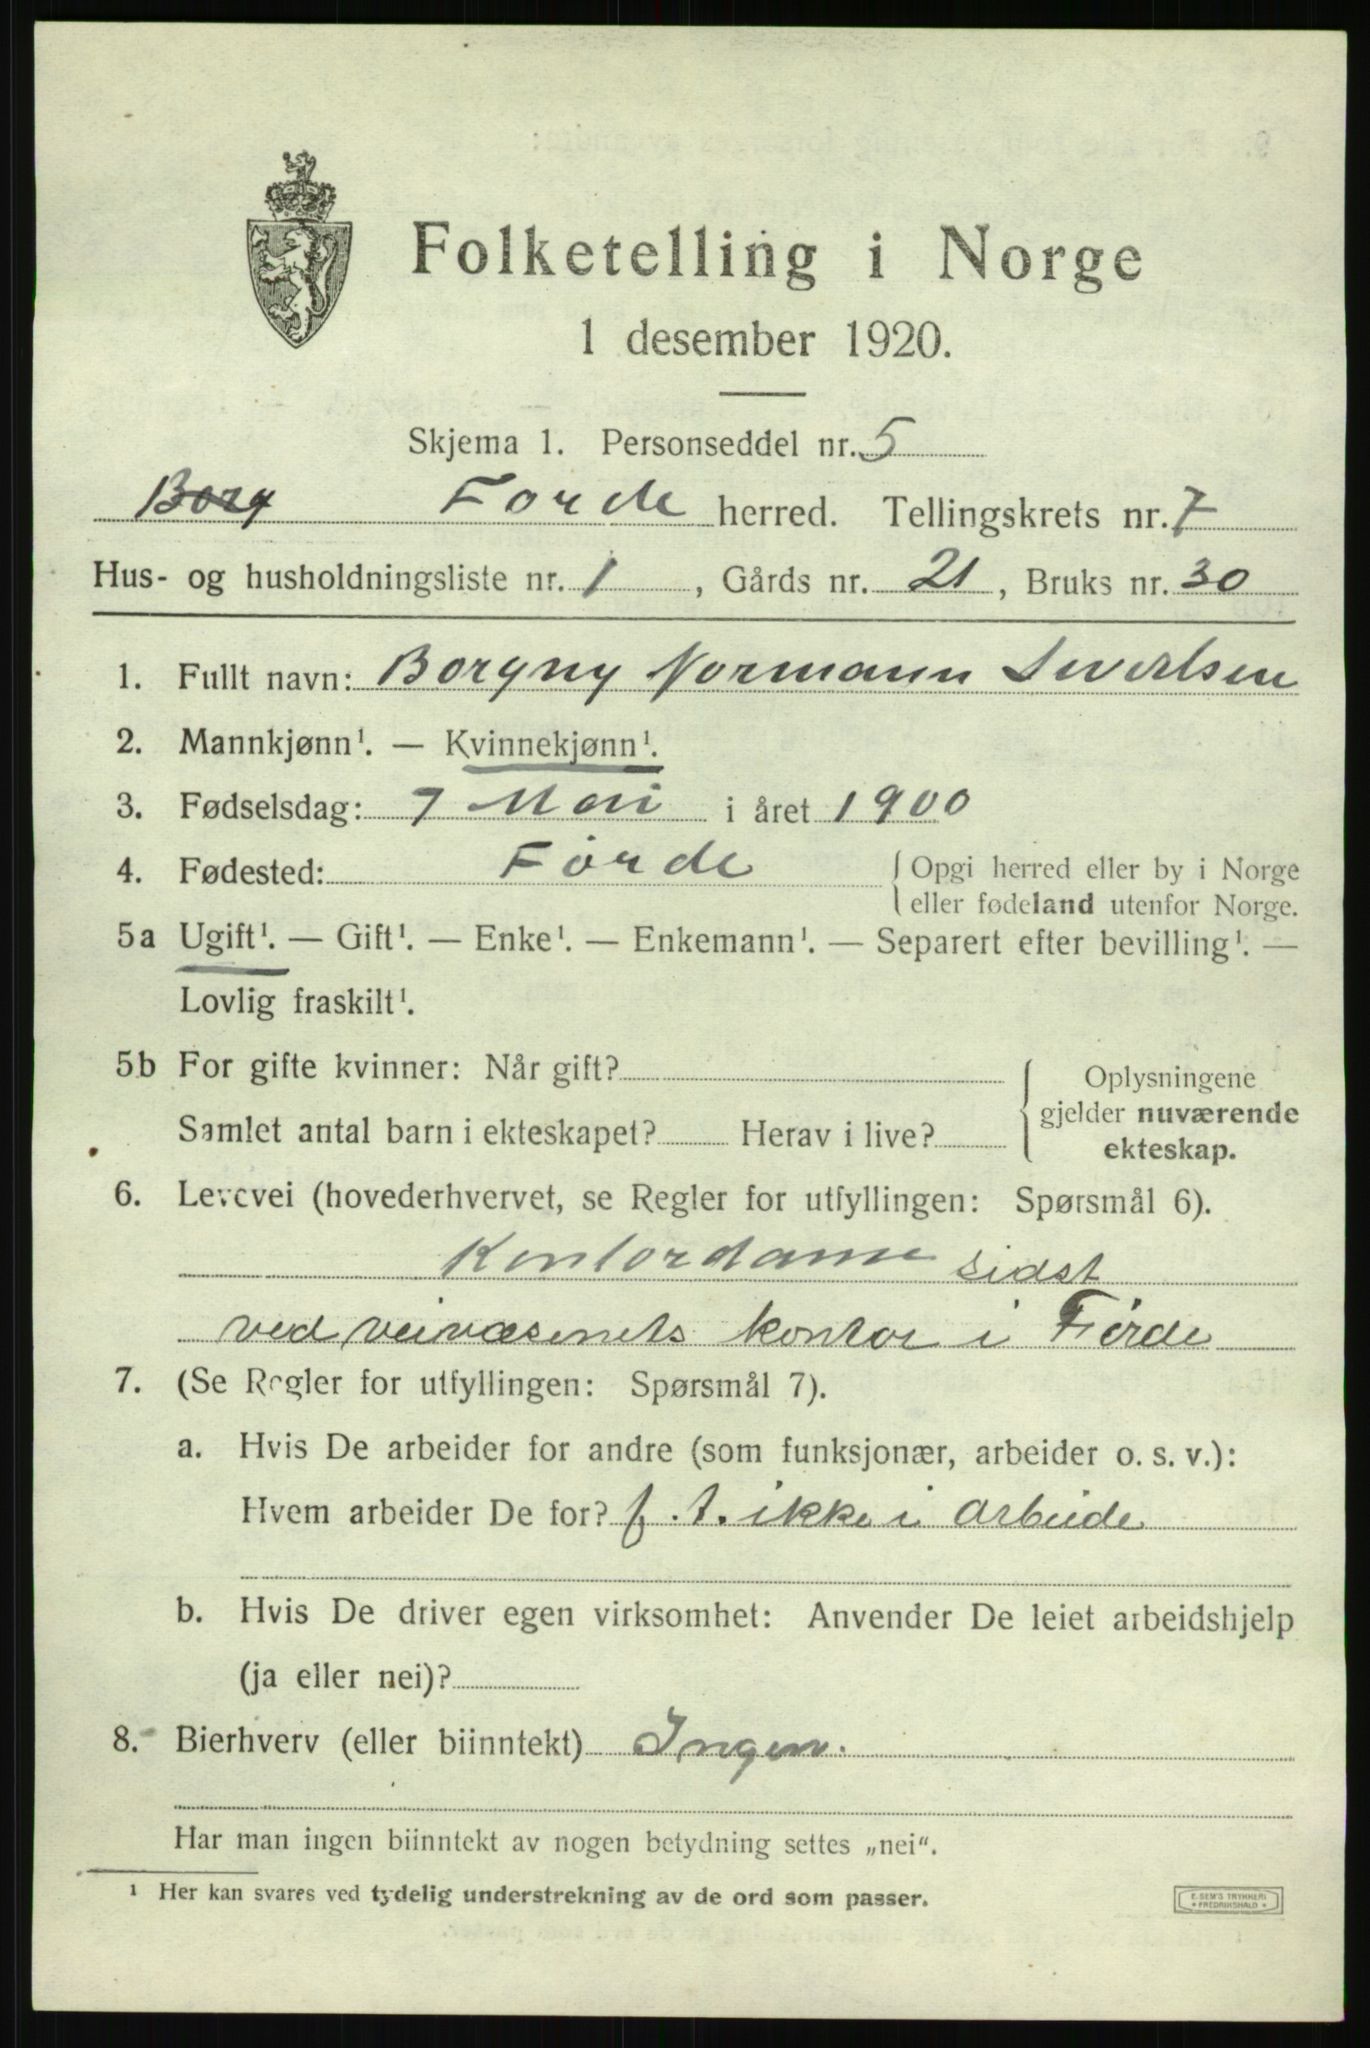 Folketelling i Norge
1 desember 1920.
Skjema 1. Personseddel nr. 5
Borg Førde herred. Tellingskrets nr. 7
Hus- og husholdningsliste nr. 1, Gårds nr. 21, Bruks nr. 30
1. Fullt navn: Borgny Normann Sivertsen
2. Mannkjønn¹. — Kvinnekjønn¹.
3. Fødselsdag: 7 Mai i året 1900
4. Fødested: Førde { Opgi herred eller by i Norge
eller fødeland utenfor Norge.
5a Ugift¹. — Gift¹. — Enke¹. — Enkemann¹. — Separert efter bevilling¹. —
Lovlig fraskilt¹.
5b For gifte kvinner: Når gift? { Oplysningene
gjelder nuværende
Samlet antal barn i ekteskapet? Herav i live?
ekteskap.
6. Levevei (hovederhvervet, se Regler for utfyllingen: Spørsmål 6).
Kontordame sidst
ved veivæsenets kontor i Førde
7. (Se Regler for utfyllingen: Spørsmål 7).
a. Hvis De arbeider for andre (som funksjonær, arbeider o. s. v.):
Hvem arbeider De for? f. t. ikke i arbeide
b. Hvis De driver egen virksomhet: Anvender De leiet arbeidshjelp
(ja eller nei)?
8. Bierhverv (eller biinntekt) Ingen.
Har man ingen biinntekt av nogen betydning settes „nei“.
¹ Her kan svares ved tydelig understrekning av de ord som passer.
E. SEM'S TRYKKERI
* FREDRIKSHALD *